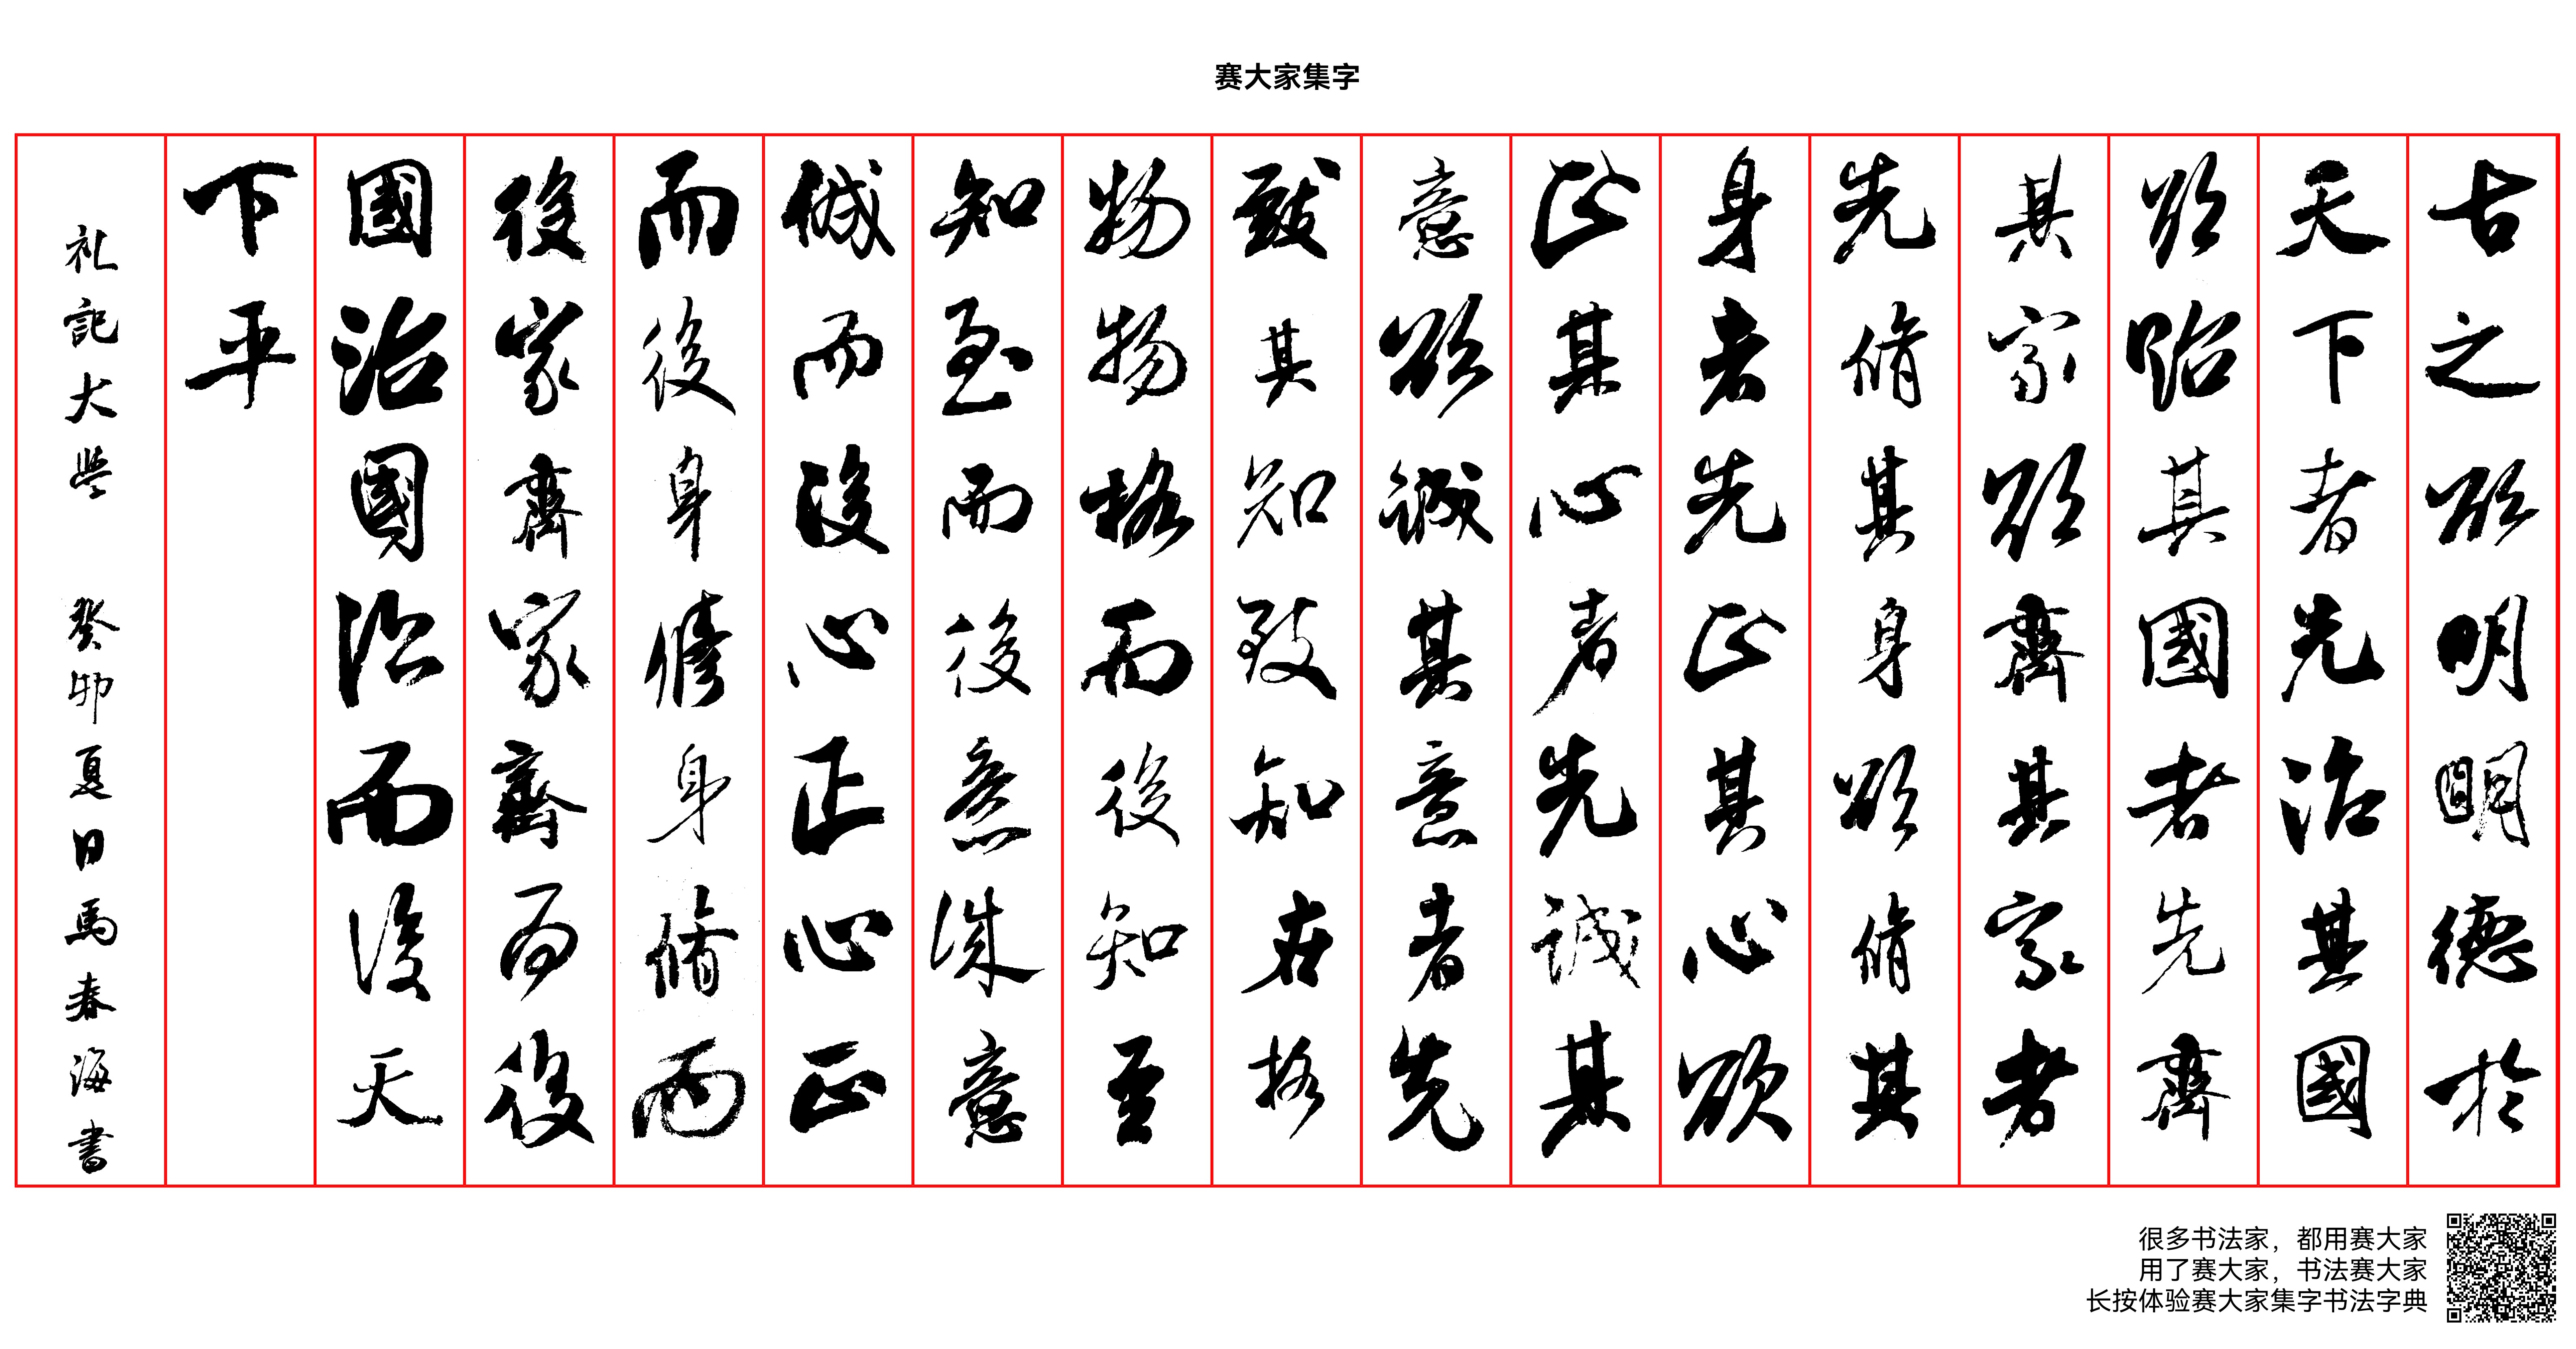 赛大家集字
古之欲明明德於
天下者先治其國
欲治其國者先齊
其家欲齊其家者
先脩其身欲脩其
身者先正其心欲
正其心者先誠其
意欲誠其意者先
致其知致知在格
物物格而後知至
知至而後意誠意
誠而後心正心正
而後身修身脩而
後家齊家齊而後
國治國治而後天
下平
礼記大學 癸卯夏日馬春海書
很多书法家，都用赛大家
用了赛大家，书法赛大家
长按体验赛大家集字书法字典